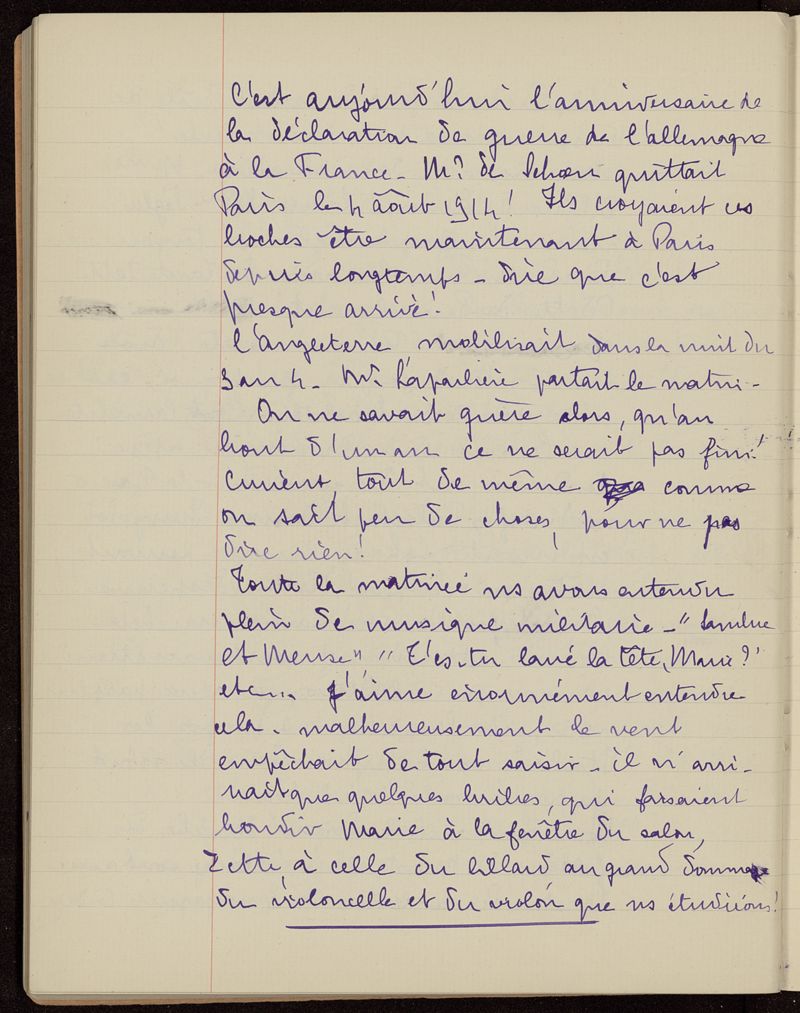 C'est aujourd'hui l'anniversaire de
la déclaration de guerre de l'allemagne
à la France - Mr de Schoen quittait
Paris le 4 août 1914! Ils croyaient ces
boches être maintenant à Paris
depuis longtemps - dire que c'est
presque arrivé!
l'Angleterre mobilisait dans la nuit du
3 au 4 - Mr partait le matin -
On ne savait guère alors, qu'au
bout d'un an ce ne serait pas fini!
Curieux, tout de même comme
on sait peu de choses, pour ne pas
dire rien!
Toute la matinée ns avons entendu
plein de musique militaire - "Sambre
et Meuse" "T'es-tu lavé la tête, Marie?"
etc... J'aime énormément entendre
cela. malheureusement le vent
empêchait de tout saisir - il n'arri-
vait que quelques bribes, qui faisaient
bondir Marie à la fenêtre du salon,
Zette, à celle du billard au grand dommage
du violoncelle et du violon que ns étudiions!